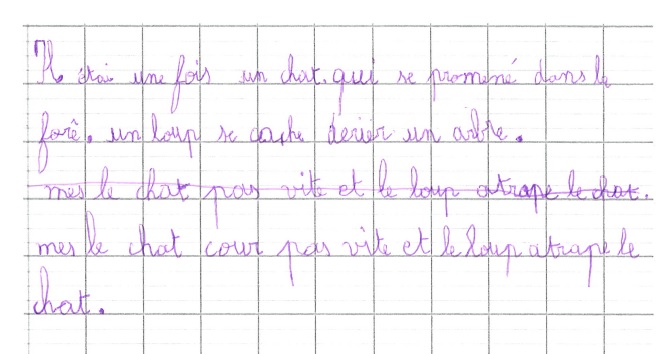 Il étai une fois un chat. qui se promené dans le
forê. un loup se cache derier un arbre.
mes le chat pas vite et le loup atrape le chat.
mes le chat cour pas vite et le loup atrape le
chat.